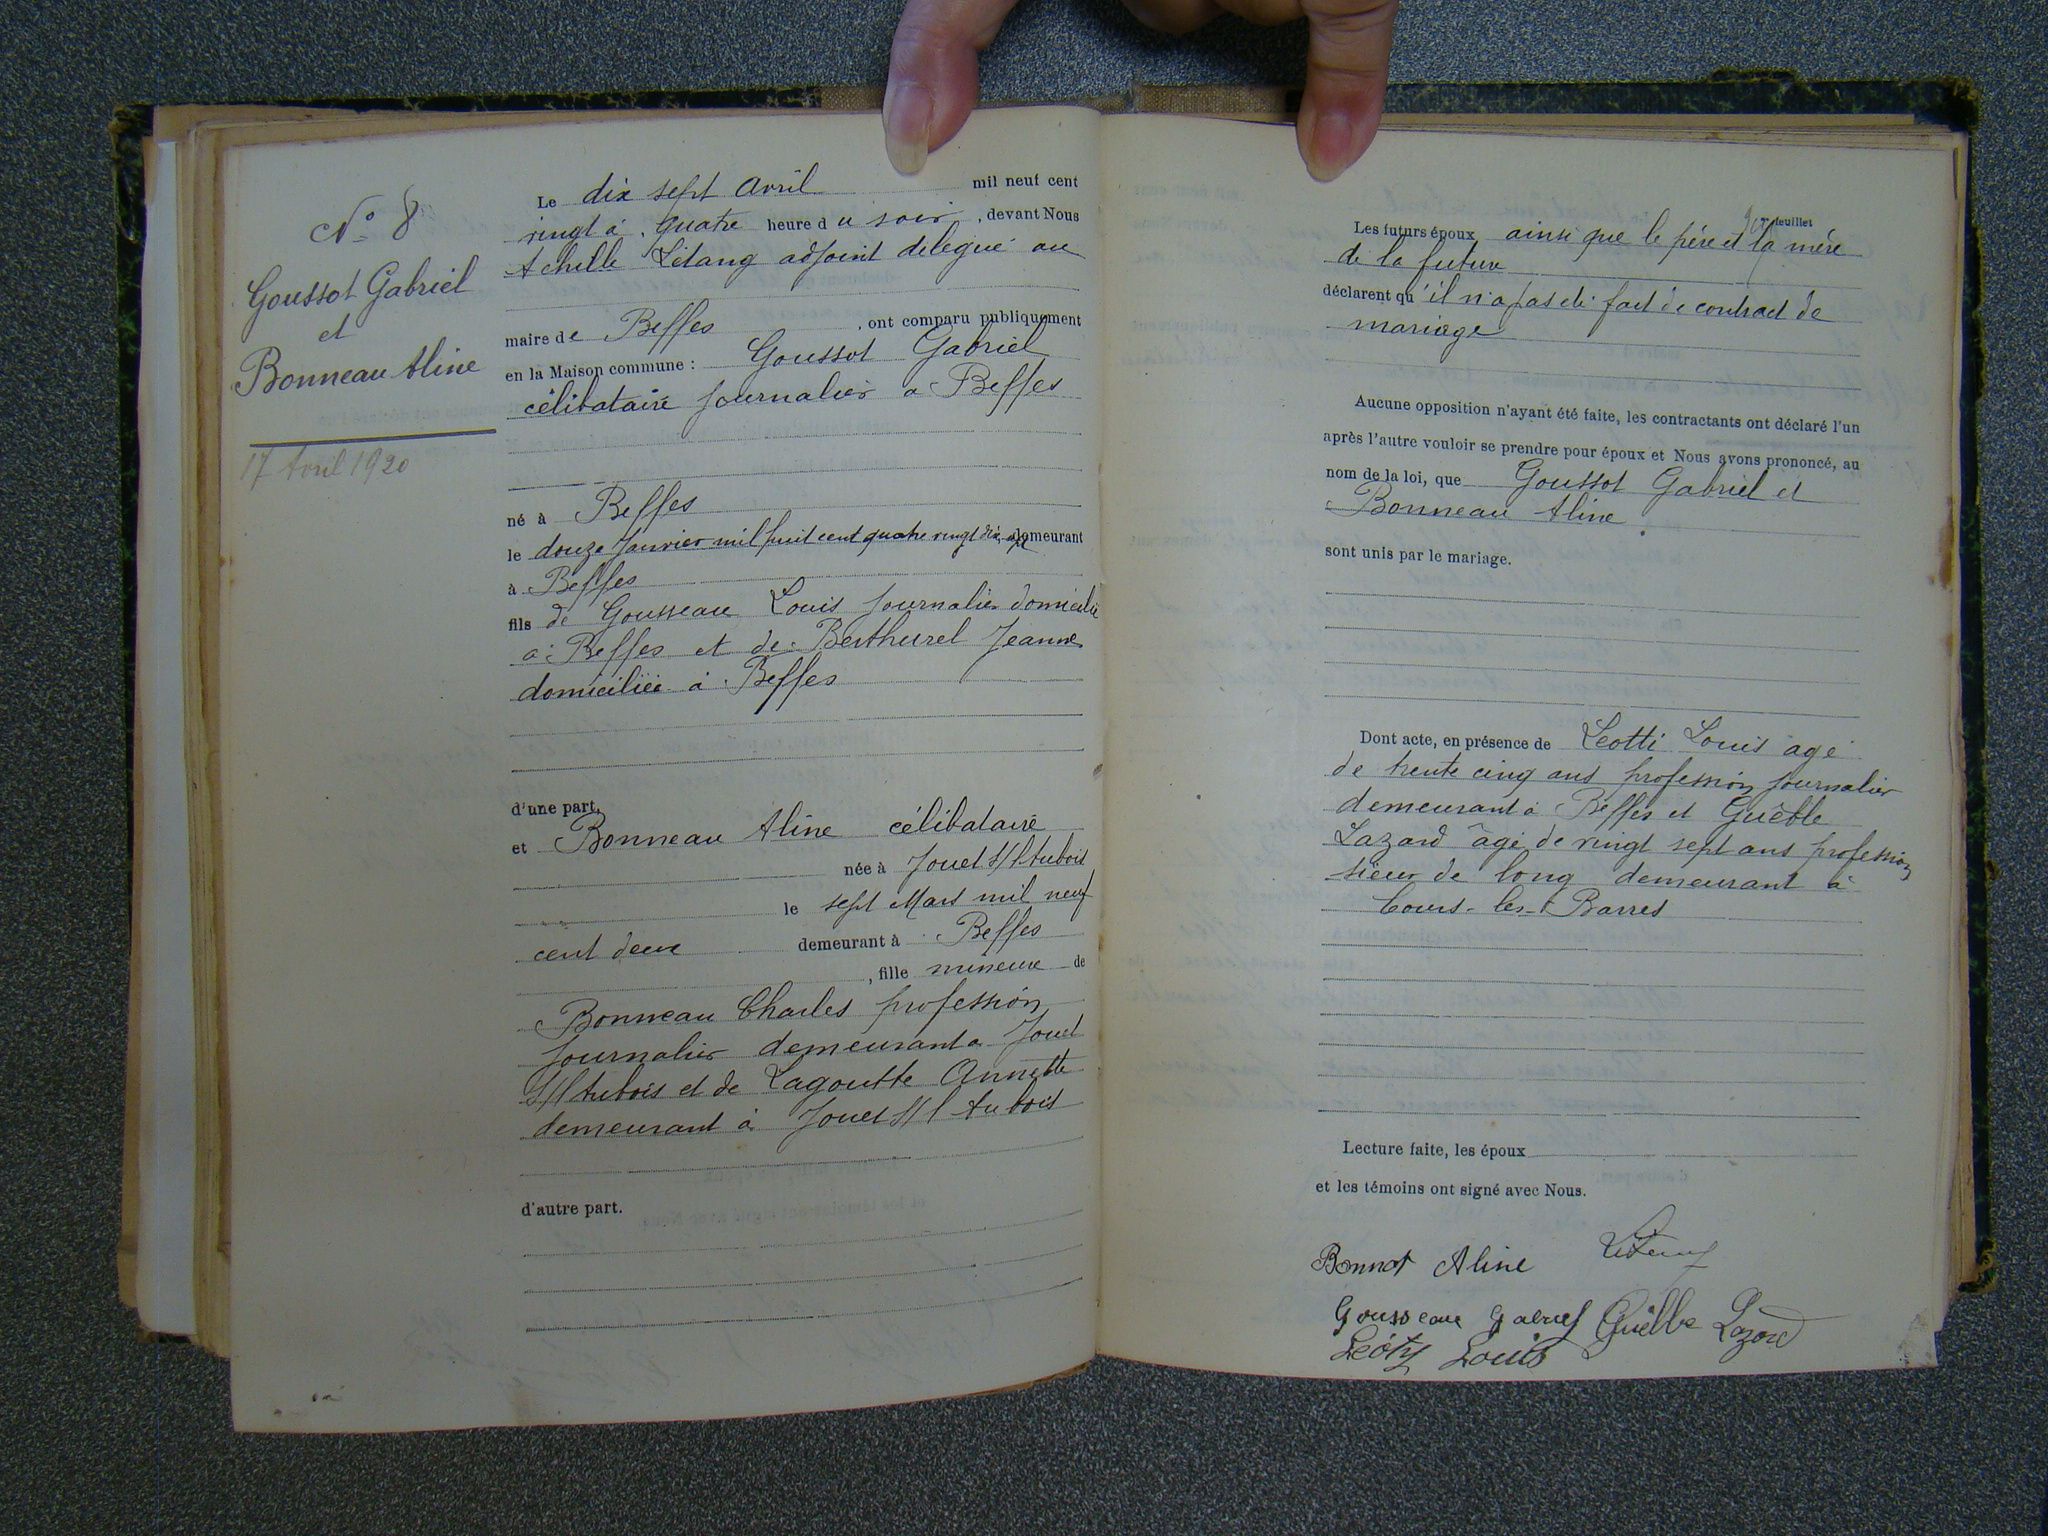 N° 8
Goussot Gabriel
et
Bonneau Aline
17 Avril 1920
Le dix sept avril mil neuf cent
vingt à quatre heure du soir, devant Nous
Achille Létang adjoint délégué au
maire de Beffes, ont comparu publiquement
en la Maison commune : Goussot Gabriel
célibataire journalier à Beffes
né à Beffes
le douze Janvier mil huit cent quatre vingt dix demeurant
à Beffes
fils de Gousseau Louis journalier domicilié
à Beffes et de Berthurel Jeanne
domiciliée à Beffes
d'une part,
et Bonneau Aline célibataire
née à Jouet s/l Aubois
le sept Mars mil neuf
cent deux demeurant à Beffes
, fille mineure de
Bonneau Charles profession
journalier demeurant à Jouet
s/l Aubois et de Lagoutte Annette
demeurant à Jouet s/l Aubois
d'autre part.
feuillet
Les futurs époux ainsi que le père et la mère
de la future
déclarent qu'il n'a pas été fait de contract de
mariage
Aucune opposition n'ayant été faite, les contractants ont déclaré l'un
après l'autre vouloir se prendre pour époux et Nous avons prononcé, au
nom de la loi, que Goussot Gabriel et
Bonneau Aline
sont unis par le mariage.
Dont acte, en présence de Léotti Louis agé
de trente cinq ans profession journalier
demeurant à Beffes et Guèble
Lazard âgé de vingt sept ans profession
sieur de long demeurant à
Cours-les-Barres
Lecture faite, les époux
et les témoins ont signé avec Nous.
Bonnot Aline
Gousseau Gabriel Guèlbe Lazard
Léoty Louis